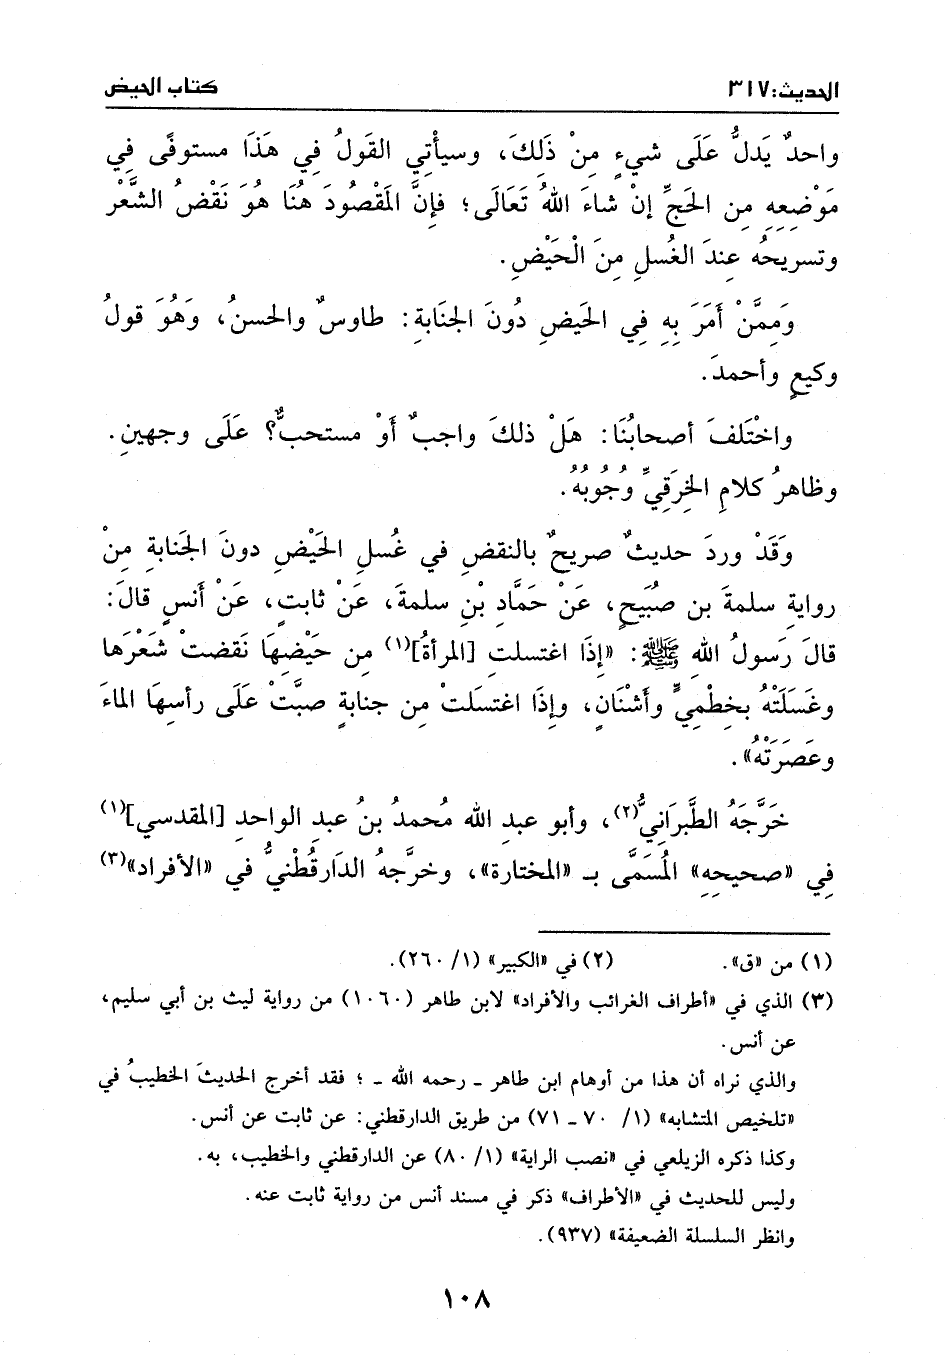 الحديث: ٣١٧
كتاب الحيض
واحدٌ يَدلُّ عَلَى شيءٍ مِنْ ذَلِكَ، وسيأْتِي القَولُ فِي هَذَا مستوفًى فِي
مَوْضِعِهِ مِن الحَجِّ إنْ شاءَ اللهُ تَعَالَى؛ فإنَّ المَقْصُودَ هُنَا هُوَ نَقْضُ الشَّعْرْ
وتسريحُه عِندَ الغُسلِ مِنَ الْحَيْضِ.
وَمِمَّنْ أَمَرَ بِهِ فِي الحَيضِ دُونَ الجنَابةِ: طاوسٌ والحسنُ، وَهُوَ قولُ
وكيعٍ وأحمدَ.
واخْتَلفَ أصحابُنَا: هَلْ ذلكَ واجبٌ أَوْ مستحبٌّ؟ عَلَى وجهينِ.
وظاهرُ كلامِ الخِرَقِيِّ وُجُوبُهُ.
وَقَدْ وردَ حديثٌ صريحٌ بالنقضِ في غُسلِ الحَيْضِ دونَ الجَنابةِ مِنْ
روايةِ سلمةَ بن صُبَيحٍ، عَنْ حَمَّادِ بْنِ سلمةَ، عَنْ ثابتٍ، عَنْ أنسٍ قالَ:
قالَ رَسولُ اللهِ ﷺ: «إذَا اغتسلتِ [المرأةُ](١) مِن حَيْضِهَا نَقضتْ شَعْرَها
وغَسَلَتْهُ بخِطْمِيٍّ وأَشْنَانٍ، وإذَا اغتسَلتْ مِن جنابةٍ صبَّتْ عَلَى رأسِهَا الماءَ
وعَصَرَتْهُ».
خَرَّجَهُ الطَّبرَانِيُّ(٢)، وأبو عبدِ اللهِ مُحمدُ بنُ عبدِ الواحدِ [المقدسي](١)
فِي «صحيحِهِ» المُسَمَّى بـ «المختارة»، وخرَّجهُ الدَارقُطْنيُّ في «الأفراد»(٣)
(١) من «ق».
(٢) في «الكبير» (١/ ٢٦٠).
(٣) الذي في «أطراف الغرائب والأفراد» لابن طاهر (١٠٦٠) من رواية ليث بن أبي سليم،
عن أنس.
والذي نراه أن هذا من أوهام ابن طاهر - رحمه الله - ؛ فقد أخرج الحديثَ الخطيبُ في
«تلخيص المتشابه» (١/ ٧٠ - ٧١) من طريق الدارقطني: عن ثابت عن أنس.
وكذا ذكره الزيلعي في «نصب الراية» (١/ ٨٠) عن الدارقطني والخطيب، به.
وليس للحديث في «الأطراف» ذكر في مسند أنس من رواية ثابت عنه.
وانظر السلسلة الضعيفة» (٩٣٧).
١٠٨